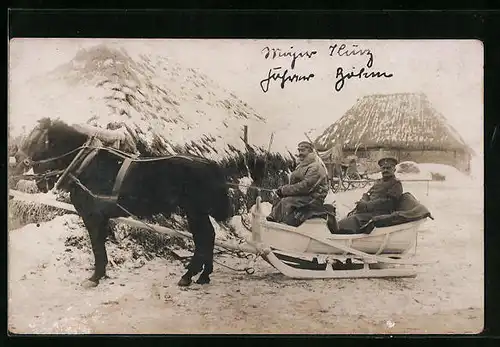 Major Kurz
Führer Böhm